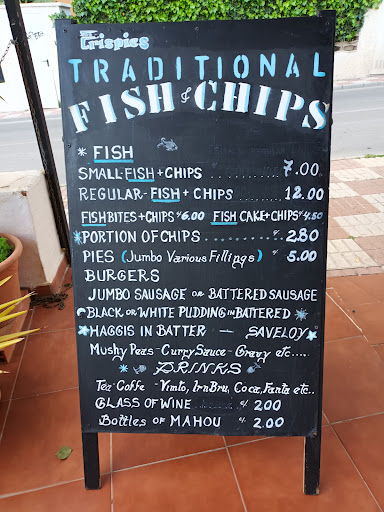 Crispies
TRADITIONAL
FISH & CHIPS
* FISH
SMALL-FISH + CHIPS 7.00
REGULAR-FISH + CHIPS 12.00
FISHBITES + CHIPS €/6.00 FISH CAKE + CHIPS €/4.50
*PORTION OF CHIPS ........... €/. 2.80
PIES (Jumbo Various Fillings) €/. 5.00
BURGERS
JUMBO SAUSAGE OR BATTERED SAUSAGE
BLACK OR WHITE PUDDING IN BATTERED *
*HAGGIS IN BATTER — SAVELOY*
Mushy Peas - Curry Sauce - Gravy etc....
* DRINKS *
Tea-Coffe - Vimto, Irn Bru, Coca, Fanta etc..
GLASS OF WINE €/ 2.00
Bottles OF MAHOU €/. 2.00